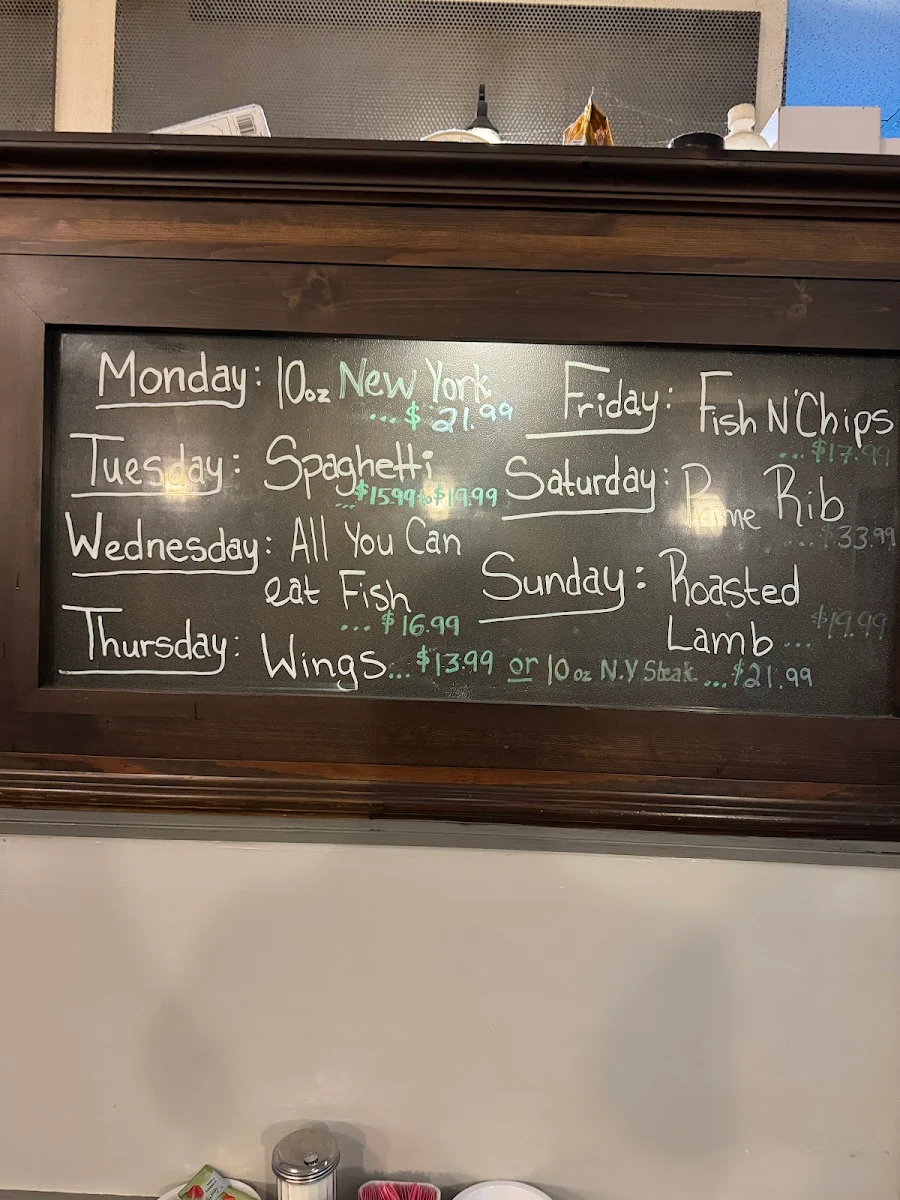 Monday: 10oz New York
...$21.99
Tuesday: Spaghetti
...$15.99 to $19.99
Wednesday: All You Can
eat Fish
...$16.99
Thursday: Wings...$13.99 or 10oz N.Y Steak...$21.99
Friday: Fish N' Chips
...$17.99
Saturday: Prime Rib
....$33.99
Sunday: Roasted
Lamb...$19.99